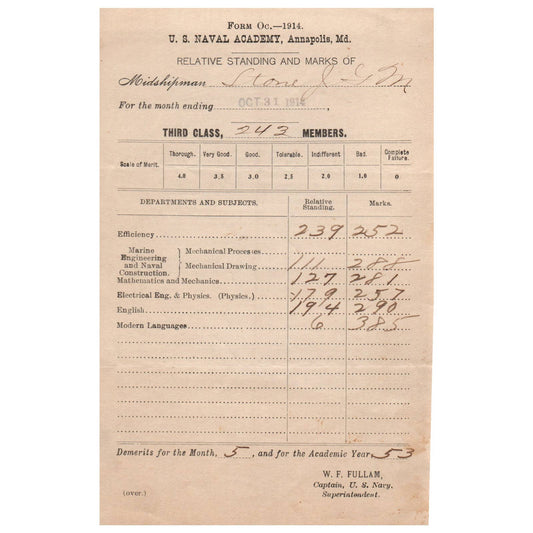 FORM OC.—1914.
U. S. NAVAL ACADEMY, Annapolis, Md.
RELATIVE STANDING AND MARKS OF
Midshipman Stone, J G M
For the month ending OCT 31 1914,
THIRD CLASS, 243 MEMBERS.
Scale of Merit. Thorough. Very Good. Good. Tolerable. Indifferent Bad. Complete Failure.
4.0 3.5 3.0 2.5 2.0 1.0 0
DEPARTMENTS AND SUBJECTS. Relative Standing. Marks.
Efficiency 239 252
Marine Engineering and Naval Construction. Mechanical Processes
Mechanical Drawing 111 288
Mathematics and Mechanics 127 281
Electrical Eng. & Physics. (Physics.) 179 257
English 194 290
Modern Languages 6 385
Demerits for the Month, 5, and for the Academic Year, 53
W. F. FULLAM,
Captain, U. S. Navy,
Superintendent.
(over.)